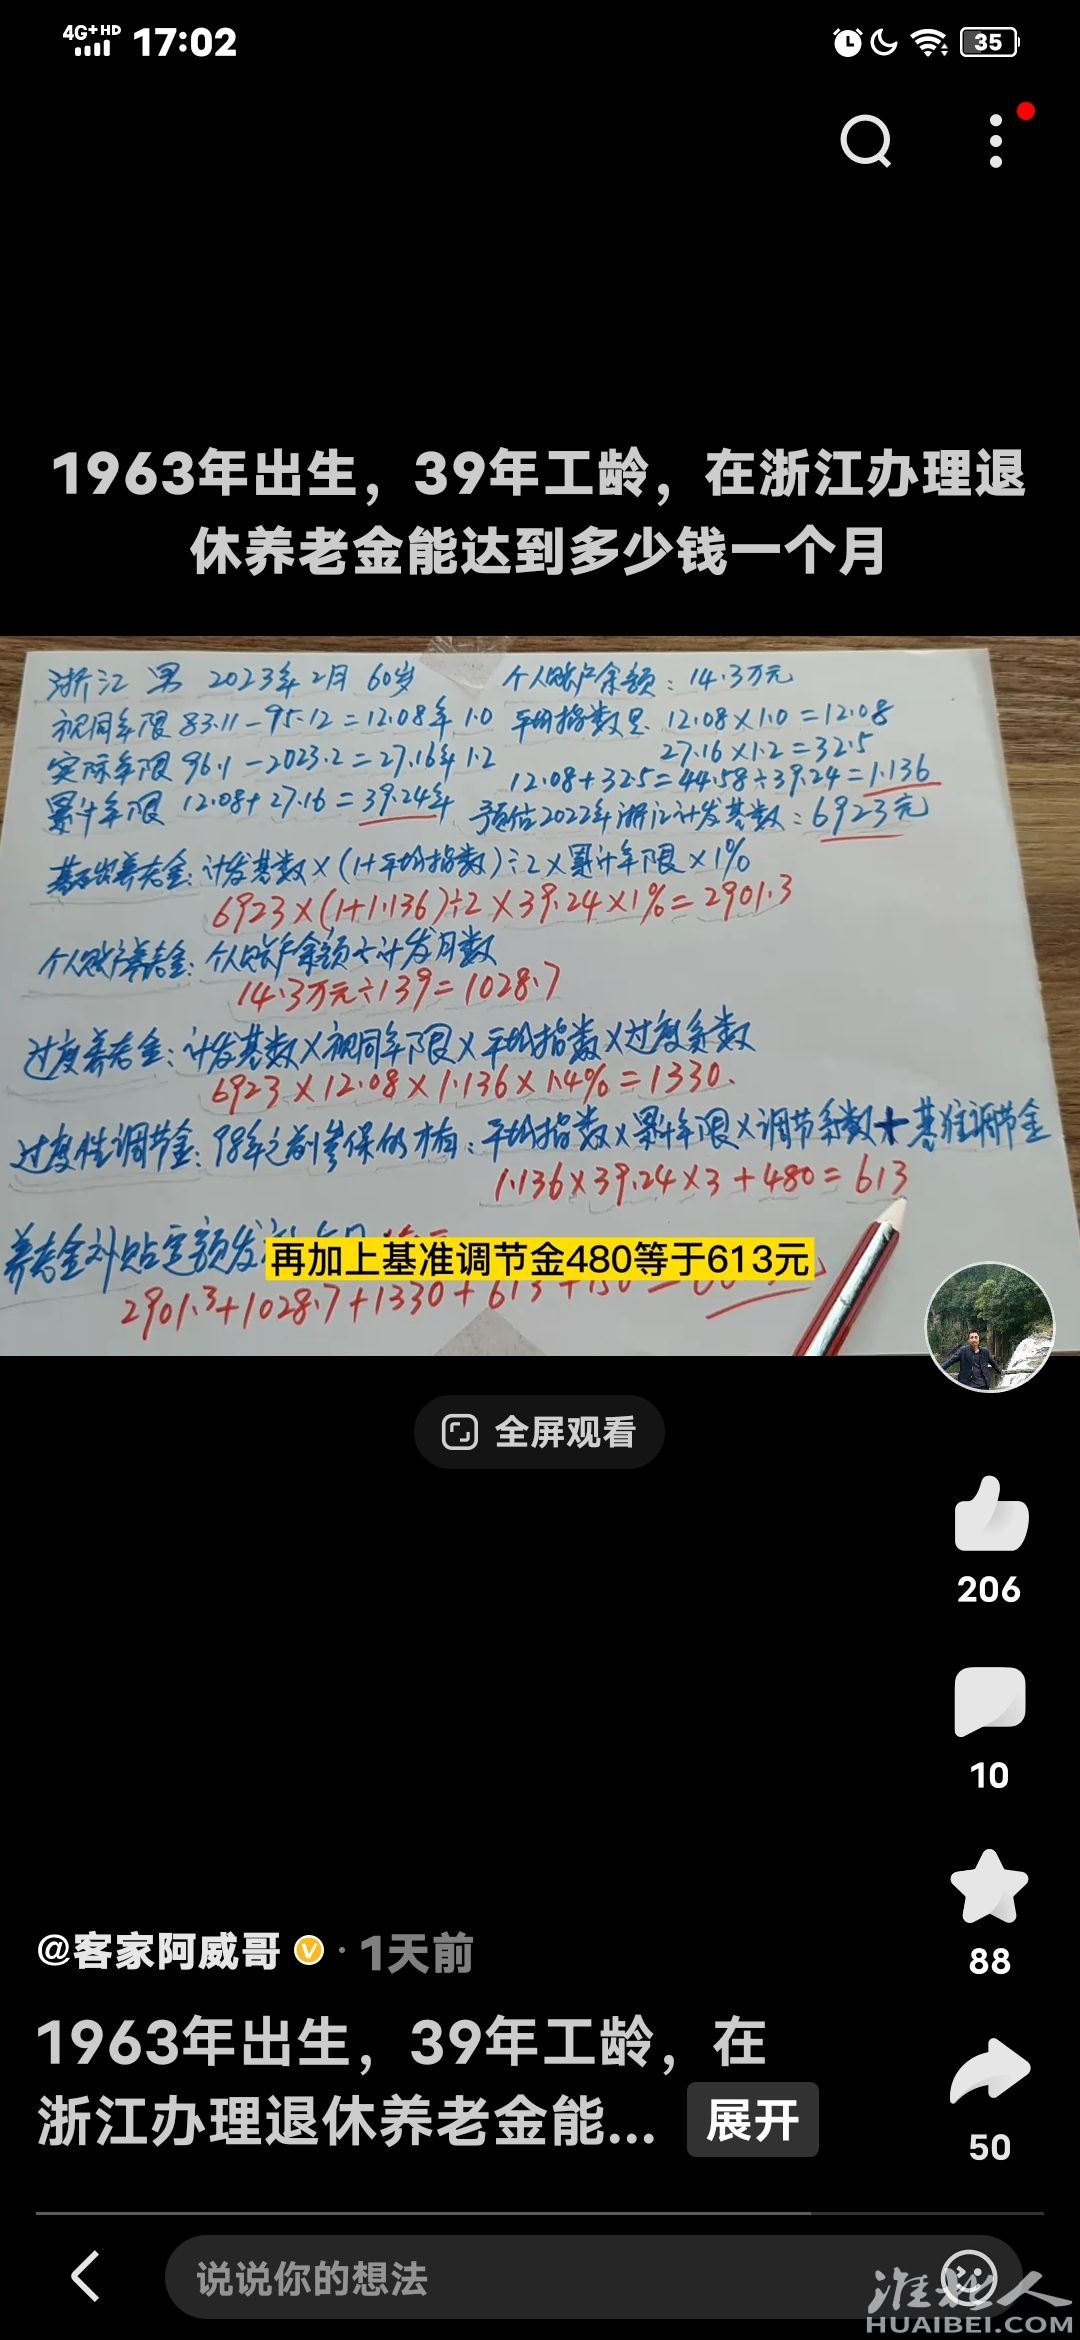 4G+HD 17:02 35
1963年出生，39年工龄，在浙江办理退
休养老金能达到多少钱一个月
浙江 男 2023年2月 60岁 个人账户余额：14.3万元
视同年限 83.11-95.12=12.08年 1.0 平均指数是 12.08×1.0=12.08
实际年限 96.1-2023.2=27.16年 1.2 27.16×1.2=32.5
12.08+32.5=44.58÷39.24=1.136
累计年限 12.08+27.16=39.24年 预估2022年浙江计发基数：6923元
基础养老金：计发基数×(1+平均指数)÷2×累计年限×1%
6923×(1+1.136)÷2×39.24×1%=2901.3
个人账户养老金：个人账户余额÷计发月数
14.3万元÷139=1028.7
过度养老金：计发基数×视同年限×平均指数×过度系数
6923×12.08×1.136×1.4%=1330.
过度性调节金：98年之前参保的才有：平均指数×累计年限×调节系数+基准调节金
1.136×39.24×3+480=613
养老金补贴定额发
再加上基准调节金480等于613元
2901.3+1028.7+1330+613+150=
全屏观看
206
10
88
50
@客家阿威哥 · 1天前
1963年出生，39年工龄，在
浙江办理退休养老金能... 展开
说说你的想法
淮北人
HUAIBEI.COM